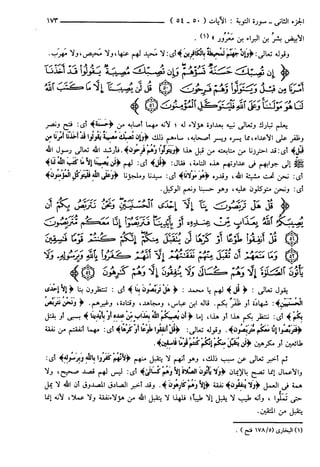 الجزء الثاني - سورة التوبة : الآيات ( ٥٠ - ٥٤ ) ١٧٣
الأبيض بشر بن البراء بن مَعْرُور » (١) .
وقوله تعالى: ﴿وَإِنَّ جَهَنَّمَ لَمُحِيطَةٌ بِالْكَافِرِينَ﴾ أي: لا محيد لهم عنها، ولا محيص، ولا مهرب.
إِن تُصِبْكَ حَسَنَةٌ تَسُؤْهُمْ وَإِن تُصِبْكَ مُصِيبَةٌ يَقُولُوا قَدْ أَخَذْنَا
أَمْرَنَا مِن قَبْلُ وَيَتَوَلَّوا وَّهُمْ فَرِحُونَ ۝ قُل لَّن يُصِيبَنَا إِلَّا مَا كَتَبَ اللَّهُ
لَنَا هُوَ مَوْلَانَا وَعَلَى اللَّهِ فَلْيَتَوَكَّلِ الْمُؤْمِنُونَ ۝
يعلم تبارك وتعالى نبيه بعداوة هؤلاء له ؛ لأنه مهما أصابه من ﴿حَسَنَةٌ﴾ أي: فتح ونصر
وظفر على الأعداء، مما يسره ويسر أصحابه، ساءهم ذلك ﴿وَإِن تُصِبْكَ مُصِيبَةٌ يَقُولُوا قَدْ أَخَذْنَا أَمْرَنَا مِن
قَبْلُ﴾ أي: قد احترزنا من متابعته من قبل هذا ﴿وَيَتَوَلَّوا وَّهُمْ فَرِحُونَ﴾. فأرشد الله تعالى رسول الله
إلى جوابهم في عداوتهم هذه التامة، فقال: ﴿قُل﴾ أي: لهم ﴿لَّن يُصِيبَنَا إِلَّا مَا كَتَبَ اللَّهُ لَنَا﴾
أي: نحن تحت مشيئة الله، وقدره ﴿هُوَ مَوْلَانَا﴾ أي: سيدنا وملجؤنا ﴿وَعَلَى اللَّهِ فَلْيَتَوَكَّلِ الْمُؤْمِنُونَ﴾
أي: ونحن متوكلون عليه، وهو حسبنا ونعم الوكيل.
قُلْ هَلْ تَرَبَّصُونَ بِنَا إِلَّا إِحْدَى الْحُسْنَيَيْنِ وَنَحْنُ نَتَرَبَّصُ بِكُمْ أَن
يُصِيبَكُمُ اللَّهُ بِعَذَابٍ مِّنْ عِندِهِ أَوْ بِأَيْدِينَا فَتَرَبَّصُوا إِنَّا مَعَكُم مُّتَرَبِّصُونَ
۝ قُلْ أَنفِقُوا طَوْعًا أَوْ كَرْهًا لَّن يُتَقَبَّلَ مِنكُمْ إِنَّكُمْ كُنتُمْ قَوْمًا فَاسِقِينَ
۝ وَمَا مَنَعَهُمْ أَن تُقْبَلَ مِنْهُمْ نَفَقَاتُهُمْ إِلَّا أَنَّهُمْ كَفَرُوا بِاللَّهِ وَبِرَسُولِهِ وَلَا
يَأْتُونَ الصَّلَاةَ إِلَّا وَهُمْ كُسَالَى وَلَا يُنفِقُونَ إِلَّا وَهُمْ كَارِهُونَ ۝
يقول تعالى : ﴿ قُلْ ﴾ لهم يا محمد : ﴿ هَلْ تَرَبَّصُونَ بِنَا ﴾ أي : تنتظرون بنا ﴿ إِلَّا إِحْدَى
الْحُسْنَيَيْنِ﴾: شهادة أو ظفر بكم. قاله ابن عباس، ومجاهد، وقتادة، وغيرهم. ﴿ وَنَحْنُ نَتَرَبَّصُ
بِكُمْ ﴾ أي: ننتظر بكم هذا أو هذا، إما ﴿ أَن يُصِيبَكُمُ اللَّهُ بِعَذَابٍ مِّنْ عِندِهِ أَوْ بِأَيْدِينَا ﴾ بسبي أو بقتل
﴿فَتَرَبَّصُوا إِنَّا مَعَكُم مُّتَرَبِّصُونَ﴾. وقوله تعالى: ﴿ قُلْ أَنفِقُوا طَوْعًا أَوْ كَرْهًا ﴾ أي: مهما أنفقتم من نفقة
طائعين أو مكرهين ﴿ لَّن يُتَقَبَّلَ مِنكُمْ إِنَّكُمْ كُنتُمْ قَوْمًا فَاسِقِينَ﴾.
ثم أخبر تعالى عن سبب ذلك، وهو أنهم لا يتقبل منهم ﴿أَنَّهُمْ كَفَرُوا بِاللَّهِ وَبِرَسُولِهِ﴾ أي:
والأعمال إنما تصح بالإيمان ﴿وَلَا يَأْتُونَ الصَّلَاةَ إِلَّا وَهُمْ كُسَالَى﴾ أي: ليس لهم قصد صحيح، ولا
همة في العمل ﴿وَلَا يُنفِقُونَ﴾ نفقة ﴿إِلَّا وَهُمْ كَارِهُونَ ﴾. وقد أخبر الصادق المصدوق أن الله لا يمل
حتى تملوا ، وأنه طيب لا يقبل إلا طيبا؛ فلهذا لا يتقبل الله من هؤلاء نفقة ولا عملا، لأنه إنما
يتقبل من المتقين.
(١) البخاري (١٧٨/٥ فتح ) .